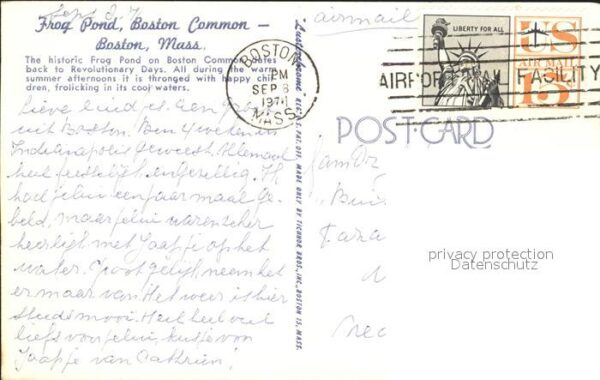 Sept 3, 71
airmail
Frog Pond, Boston Common —
Boston, Mass.
The historic Frog Pond on Boston Common dates
back to Revolutionary Days. All during the warm
summer afternoons it is thronged with happy chil-
dren, frolicking in its cool waters.
Lieve
uit Boston. Ben
Indianapolis geweest. Allemaal
heel feestelijk en gezellig. Ik
had jelui een paar maal ge-
beld, maar jelui waren zeker
heerlijk met Jaapje op het
water. Groot gelijk, neem het
er maar van. Het weer is hier
steeds mooi. Heel veel
liefs voor jelui, kusje voor
Jaapje van Cathrien!
Lusterchrome REG. U.S. PAT. OFF. MADE ONLY BY TICHNOR BROS., INC., BOSTON 15, MASS.
BOSTON
PM
SEP 8
1971
MASS.
LIBERTY FOR ALL
US
AIR MAIL
15¢
AIRPORT MAIL FACILITY
POST CARD
Fam
privacy protection
Datenschutz